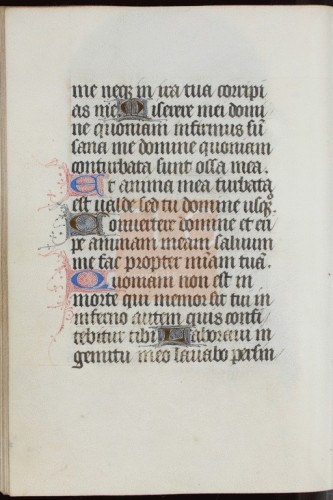 me neq; in ira tua corripi
as me Miserere mei domi
ne quoniam infirmus sū
sana me domine quoniam
conturbata sunt ossa mea.
Et anima mea turbata
est valde sed tu domine usq;
Convertere domine et eri
pe animam meam salvum
me fac propter miam̄ tuā.
Quoniam non est in
morte qui memor sit tui in
inferno autem quis confi
tebitur tibi Laboravi in
gemitu meo lavabo per sin